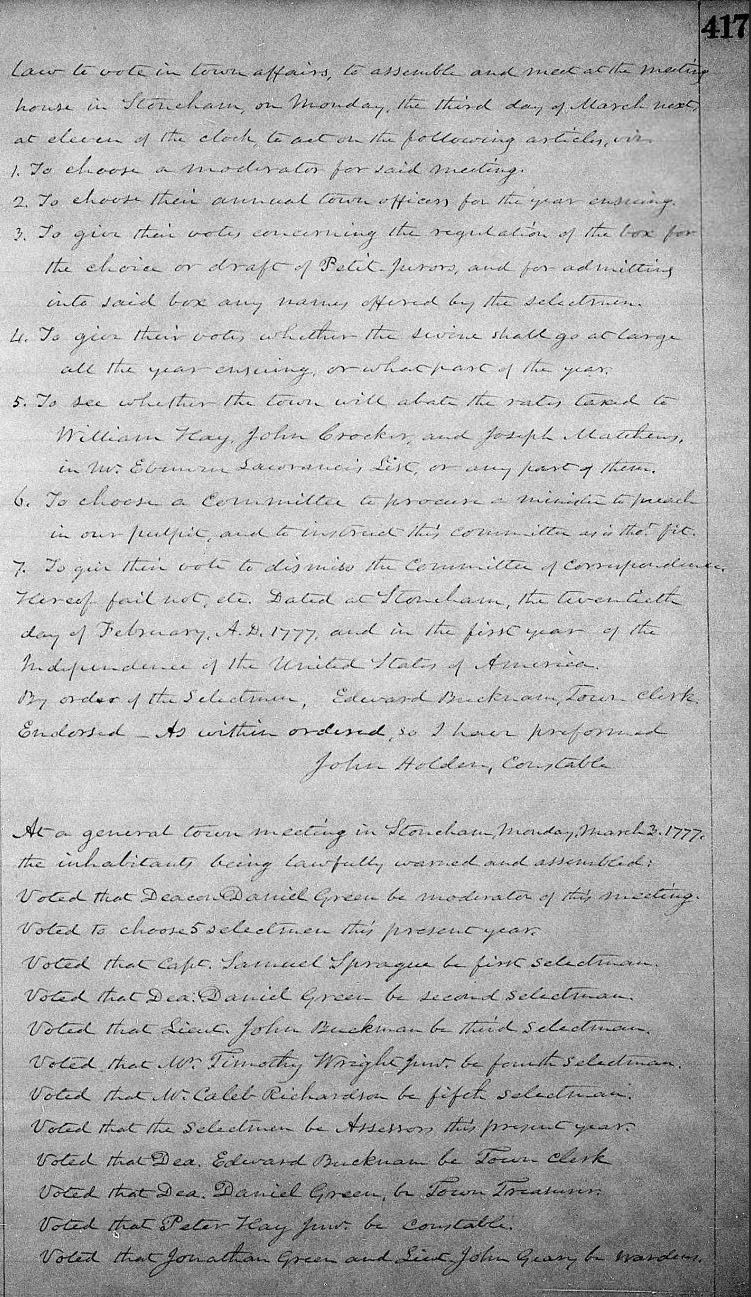 417
law to vote in town affairs, to assemble and meet at the meeting
house in Stoneham, on Monday, the third day of March next,
at eleven of the clock, to act on the following articles, viz.
1. To choose a moderator for said meeting.
2. To choose their annual town officers for the year ensuing.
3. To give their votes concerning the regulation of the box for
the choice or draft of Petit Jurors, and for admitting
into said box any names offered by the selectmen.
4. To give their votes whether the swine shall go at large
all the year ensuing, or what part of the year.
5. To see whether the town will abate the rates taxed to
William Hay, John Crocker, and Joseph Matthews,
in Mr. Lawrance's List, or any part of them.
6. To choose a Committee to procure a minister to preach
in our pulpit, and to instruct this committee as is tho't fit.
7. To give their vote to dismiss the Committee of Correspondence.
Hereof fail not, etc. Dated at Stoneham, the twentieth
day of February, A.D. 1777, and in the first year of the
Independence of the United States of America.
By order of the Selectmen, Edward Bucknam, Town Clerk.
Endorsed – As within ordered, so I have preformed
John Holden, Constable
At a general town meeting in Stoneham, Monday, March 3. 1777.
the inhabitants being lawfully warned and assembled:
Voted that Deacon Daniel Green be moderator of this meeting.
Voted to choose 5 selectmen this present year.
Voted that Capt. Samuel Sprague be first selectman.
Voted that Dea. Daniel Green be second selectman.
Voted that Lieut. John Buckman be third selectman.
Voted that Mr. Timothy Wright Junr. be fourth selectman.
Voted that Mr. Caleb Richardson be fifth selectman.
Voted that the Selectmen be Assessors this present year.
Voted that Dea. Edward Bucknam be Town Clerk
Voted that Dea. Daniel Green, be Town Treasurer.
Voted that Peter Hay Junr. be constable.
Voted that Jonathan Green and Lieut. John Geary be wardens.